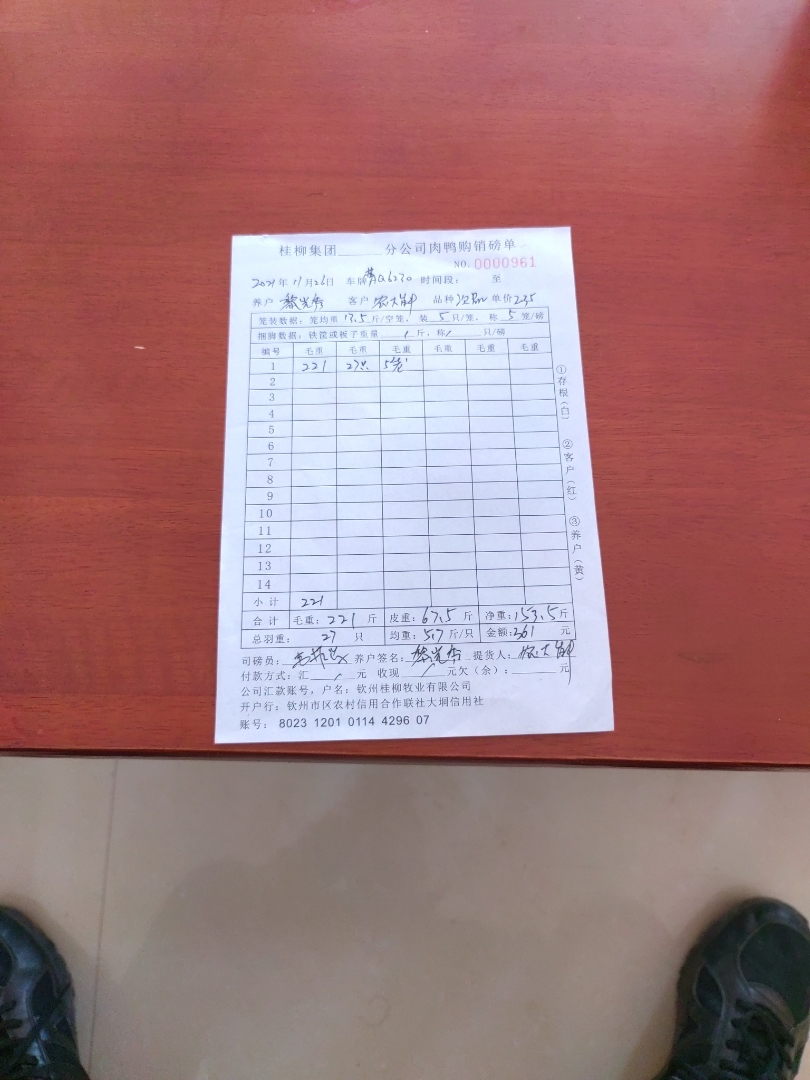 桂柳集团______分公司肉鸭购销磅单
NO. 0000961
2021年11月26日 车牌 黄Q6230 时间段: 至
养户 黎光秀 客户 农大 品种 次品 单价 2.35
笼装数据: 笼均重 13.5 斤/空笼, 装 5 只/笼, 称 5 笼/磅
捆脚数据: 铁筐或板子重量 / 斤, 称 / 只/磅
编号 毛重 毛重 毛重 毛重 毛重 毛重
1 221 27只 5笼
2
3
4
5
6
7
8
9
10
11
12
13
14
小计 221
合计 毛重: 221 斤 皮重: 67.5 斤 净重: 153.5 斤
总羽重: 27 只 均重: 5.7 斤/只 金额: 361 元
司磅员: 养户签名: 黎光秀 提货人: 农大
付款方式: 汇 / 元 收现 / 元欠(余): ______元
公司汇款账号, 户名: 钦州桂柳牧业有限公司
开户行: 钦州市区农村信用合作联社大垌信用社
账号: 8023 1201 0114 4296 07
①存根(白) ②客户(红) ③养户(黄)